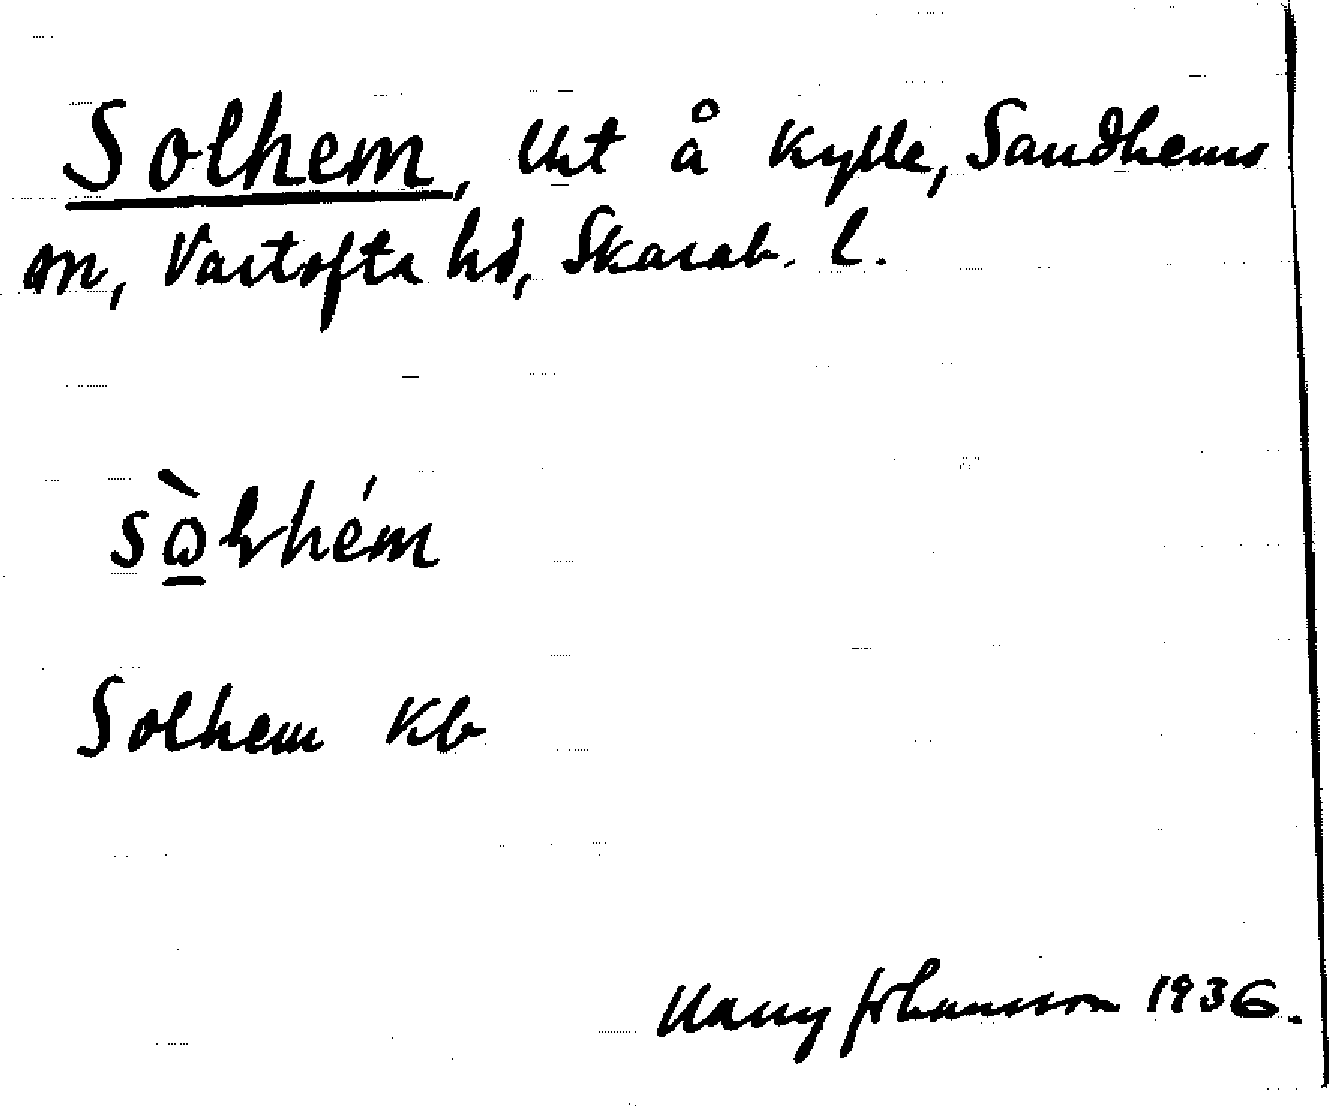 Solhem, lht å Kylle, Sandhems
sn, Vartofta hd, Skarab. l.
sὼlhém
Solhem Kb
Harry Johansson 1936.